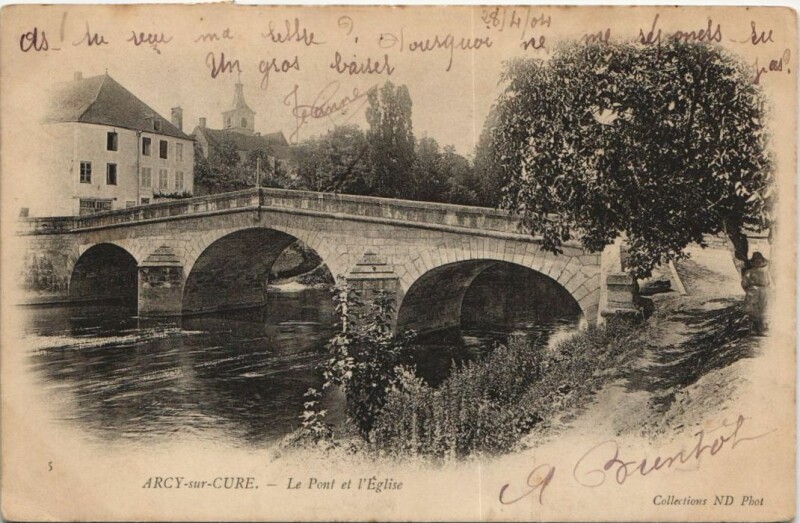 28/4/04
as-tu reçu ma lettre ? Pourquoi ne me réponds-tu
pas.
Un gros baiser
Jeanne
A Bientôt
5
ARCY-sur-CURE. - Le Pont et l'Église
Collections ND Phot